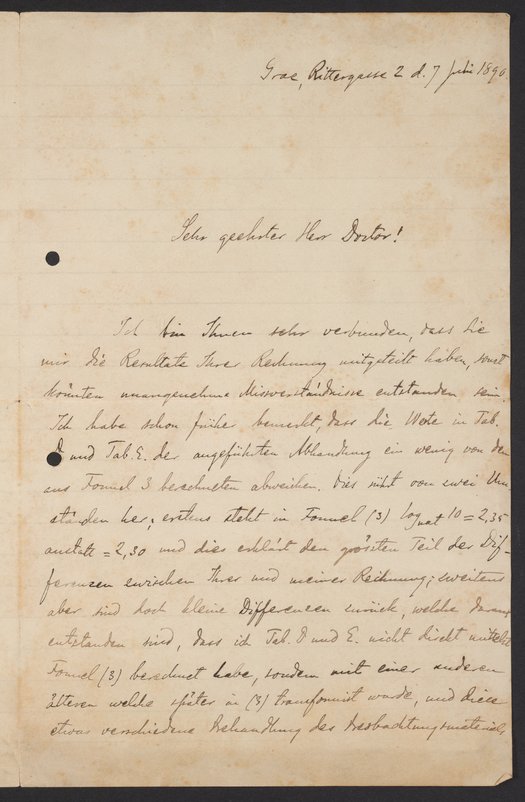 Graz, Rittergasse 2 d. 7 Juni 1890.
Sehr geehrter Herr Doctor!
Ich bin Ihnen sehr verbunden, dass Sie
mir die Resultate Ihrer Rechnung mitgeteilt haben, sonst
könnten unangenehme Missverständnisse entstanden sein.
Ich habe schon früher bemerkt, dass die Werte in Tab.
D und Tab. E. der angeführten Abhandlung ein wenig von den
aus Formel 3 berechneten abweichen. Dies rührt von zwei Um
ständen her; erstens steht in Formel (3) log nat 10 = 2,35
anstatt = 2,30 und dies erklärt den grössten Teil der Dif-
ferenzen zwischen Ihrer und meiner Rechnung; zweitens
aber sind doch kleine Differenzen zurück, welche daraus
entstanden sind, dass ich Tab. D und E. nicht direkt mittelst
Formel (3) berechnet habe, sondern mit einer anderen
älteren welche später in (3) transformirt wurde, und diese
etwas verschiedene Behandlung des Beobachtungsmaterials,